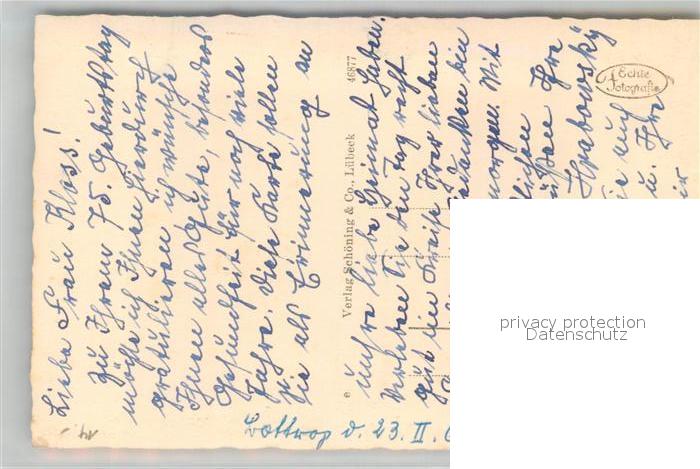 Liebe Frau Kloss!
Zu Ihrem 75. Geburtstag
möchte ich Ihnen hierdurch
gratulieren u. wünsche
Ihnen alles Gute, besonders
Gesundheit für noch viele
Jahre. Diese Karte sollen
Sie als Erinnerung an
Ihre liebe Heimat haben.
Verleben Sie den Tag recht
gut im Kreise Ihrer lieben
Gedanken bin
morgen. Mit
lichen
Grüßen Ihre
Grabowsky
Sie auch
u. Ihre
Bottrop d. 23. II.
e Verlag Schöning & Co., Lübeck 46877
Echte
Fotografie
privacy protection
Datenschutz